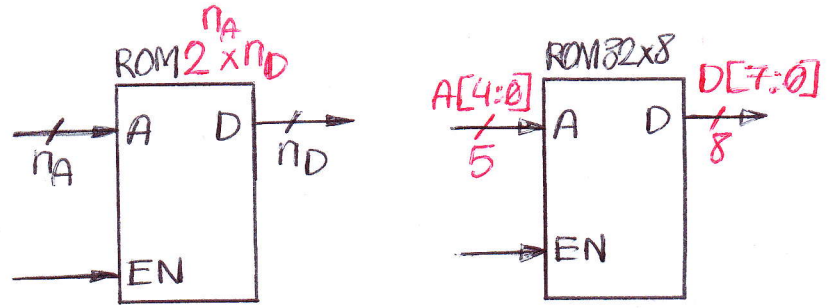 ROM 2^nA x nD
A D
nA nD
EN
ROM 32x8
A[4:0] D[7:0]
A D
5 8
EN